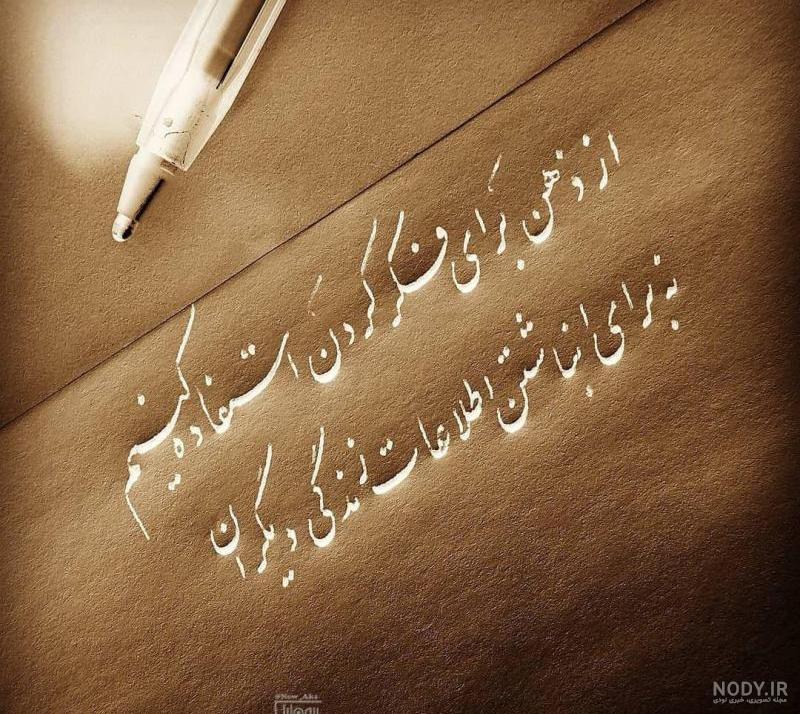 از ذهن برای فکر کردن استفاده کنیم
نه برای انباشتن اطلاعات زندگی دیگران
@New_Aks
NODY.IR
مجله تصویری، خبری نودی